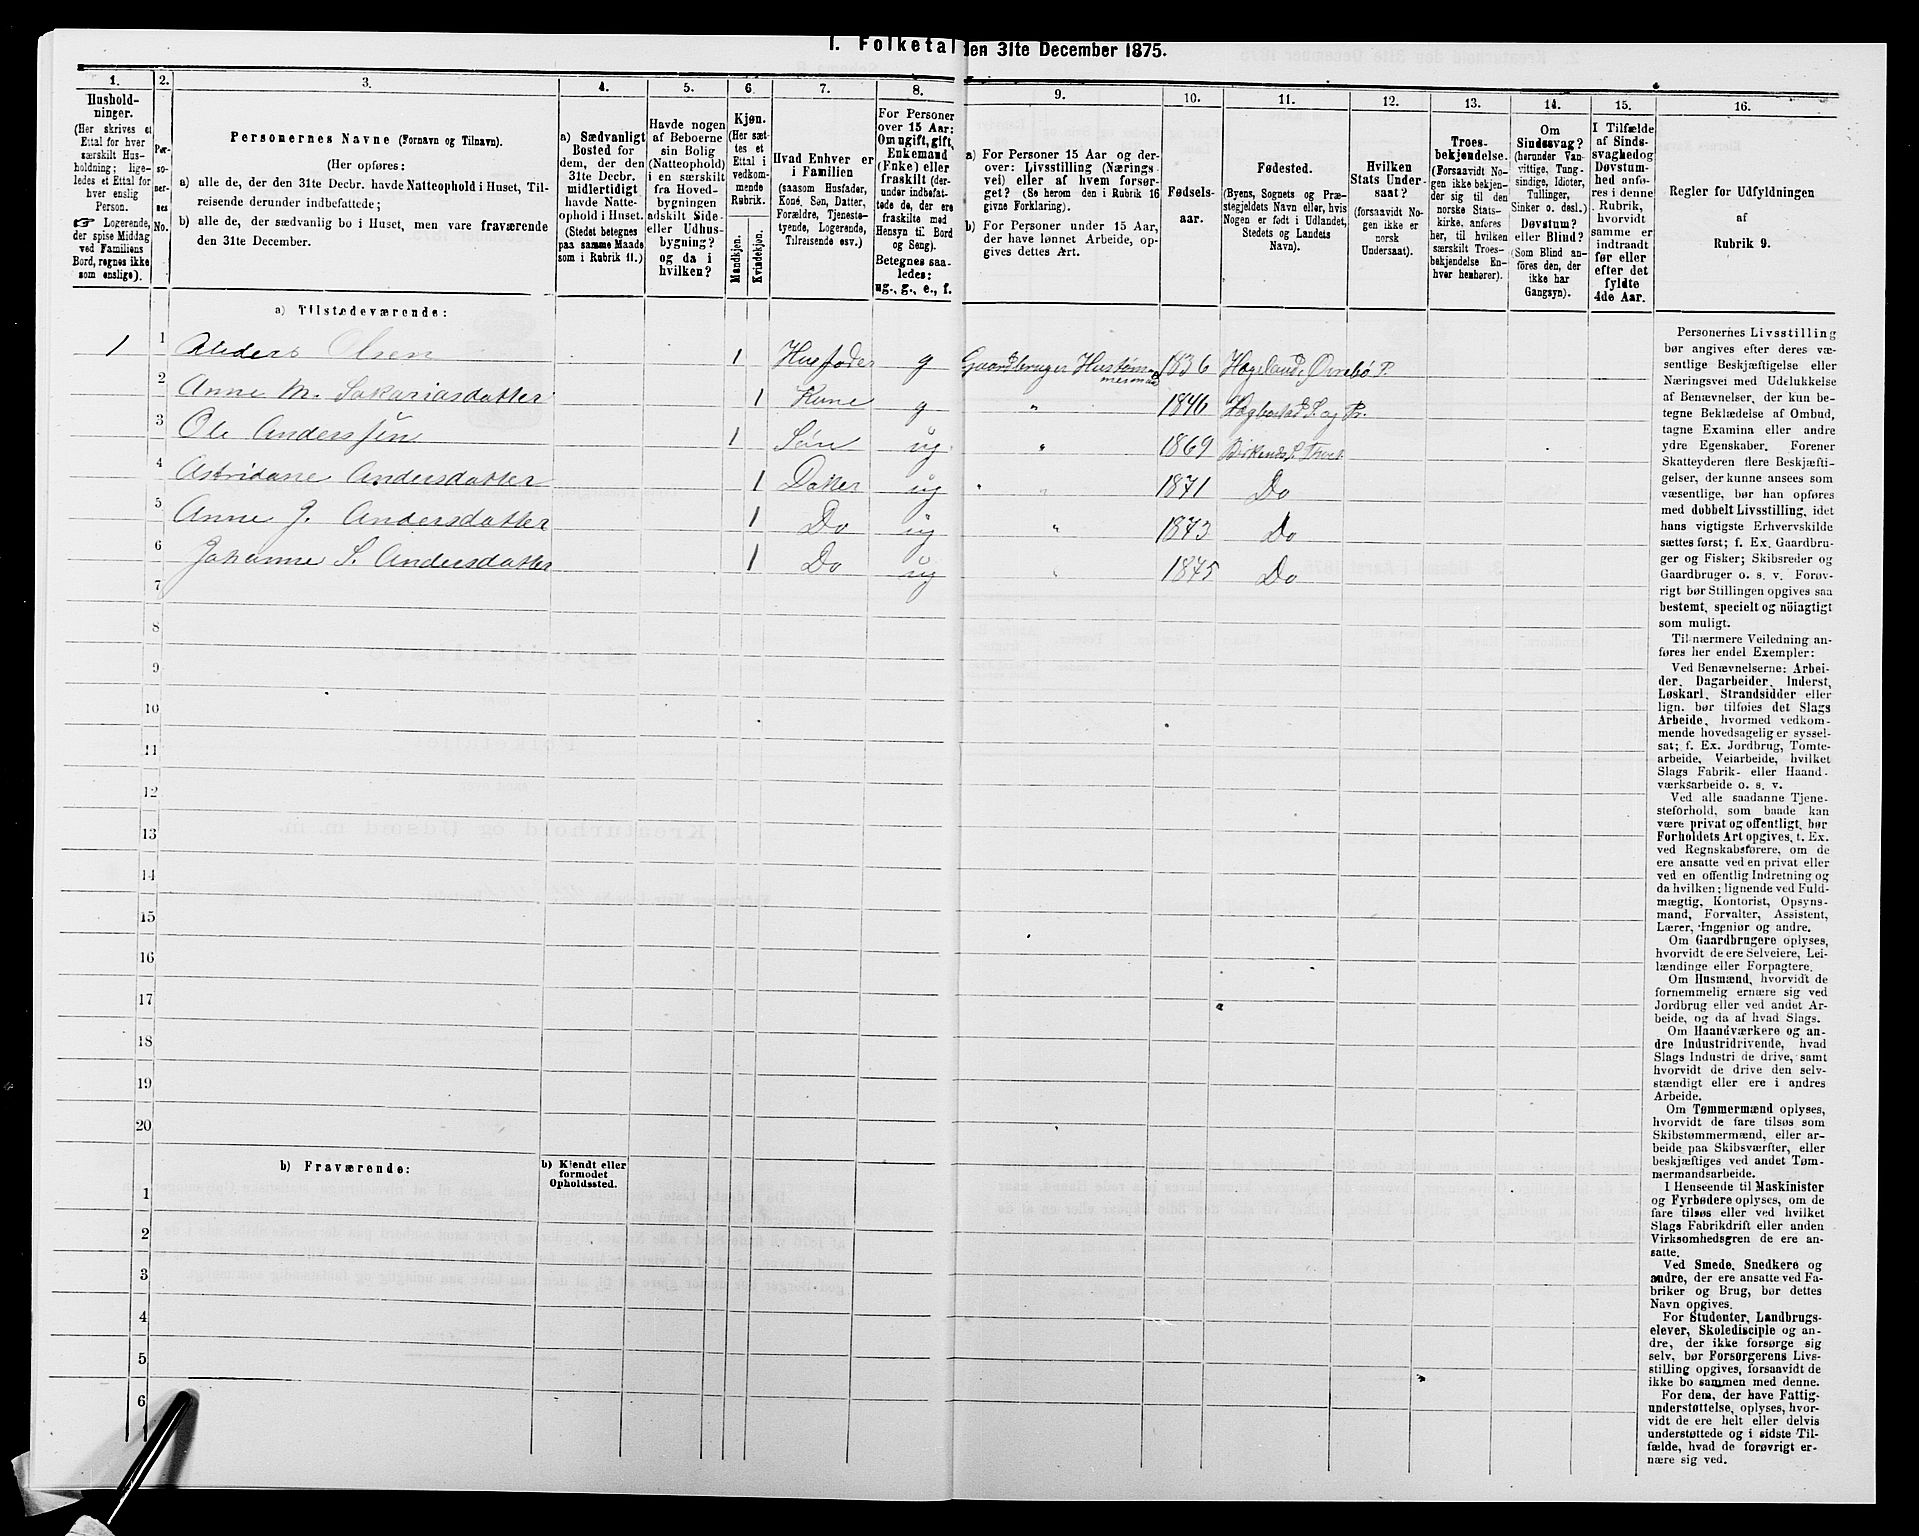 1. Folketal den 31te December 1875.
1.
Hushold-
ninger.
(Her skrives et
Ettal for hver
særskilt Hus-
holdning; lige-
ledes et Ettal for
hver enslig
Person.
☞ Logerende,
der spise Middag
ved Familiens
Bord, regnes ikke
som enslige).
2.
Per-
so-
ner-
nes
No.
3.
Personernes Navne (Fornavn og Tilnavn).
(Her opføres:
a) alle de, der den 31te Decbr. havde Natteophold i Huset, Til-
reisende derunder indbefattede;
b) alle de, der sædvanlig bo i Huset, men vare fraværende
den 31te December.
4.
a) Sædvanligt
Bosted for
dem, der den
31te Decbr.
midlertidigt
havde Natte-
ophold i Huset.
(Stedet betegnes
paa samme Maade
som i Rubrik 11.)
5.
Havde nogen
af Beboerne
sin Bolig
(Natteophold)
i en særskilt
fra Hoved-
bygningen
adskilt Side-
eller Udhus-
bygning?
og da i
hvilken?
6.
Kjøn.
(Her sæt-
tes et
Ettal i
vedkom-
mende
Rubrik.
Mandkjøn.
Kvindekjøn.
7.
Hvad Enhver er
i Familien
(saasom Husfader,
Kone, Søn, Datter,
Forældre, Tjeneste-
tyende, Logerende,
Tilreisende osv.)
8.
For Personer
over 15 Aar:
Om ugift, gift,
Enkemand
(Enke) eller
fraskilt (der-
under indbefat-
tede de, der ere
fraskilte med
Hensyn til Bord
og Seng).
Betegnes saa-
ledes:
ug., g., e., f.
9.
a) For Personer 15 Aar og der-
over: Livsstilling (Nærings
vei) eller af hvem forsør-
get? (Se herom den i Rubrik 16
givne Forklaring).
b) For Personer under 15 Aar,
der have lønnet Arbeide, op-
gives dettes Art.
10.
Fødsels-
aar.
11.
Fødested.
(Byens, Sognets og Præ-
stegjeldets Navn eller, hvis
Nogen er født i Udlandet,
Stedets og Landets
Navn).
12.
Hvilken
Stats Under-
saat?
(forsaavidt No-
gen ikke er
norsk
Undersaat).
13.
Troes-
bekjendelse.
(Forsaavidt No-
gen ikke bekjen-
der sig til den
norske Stats-
kirke, anføres
her, til hvilken
særskilt Troes-
bekjendelse En-
hver henhører).
14.
Om
Sindssvag?
(herunder Van-
vittige, Tung-
sindige, Idioter,
Tullinger,
Sinker o. desl.)
Døvstum?
eller Blind?
(Som Blind an-
føres den, der
ikke har
Gangsyn).
15.
I Tilfælde
af Sinds-
svaghed og
Døvstum-
hed anfø-
res i denne
Rubrik,
hvorvidt
samme er
indtraadt
før eller
efter det
fyldte
4de Aar.
16.
Regler for Udfyldningen
af
Rubrik 9.
a) Tilstedeværende:
1 1 Anders Olsen 1 Husfader g Gaardbruger Hustøm-
mermand 1836 Hægeland, Øvrebø P.
2 Anne M. Sakariasdatter 1 Kone g " 1846 Hægbostad S. og Pr.
3 Ole Anderssen 1 Søn ug " 1869
4 Astridane Andersdatter 1 Datter ug " " 1871 Do
5 Anne J. Andersdatter 1 Do ug " 1873 Do
6 Johanne S. Andersdatter 1 Do ug " 1875 Do
7
8
9
10
11
12
13
14
15
16
17
18
19
20
b) Fraværende:
b) Kjendt eller
formodet
Opholdssted.
1
2
3
4
5
6
Personernes Livsstilling
bør angives efter deres væ-
sentlige Beskjæftigelse eller
Næringsvei med Udelukkelse
af Benævnelser, der kun be-
tegne Beklædelse af Ombud,
tagne Examina eller andre
ydre Egenskaber. Forener
Skatteyderen flere Beskjæfti-
gelser, der kunne ansees som
væsentlige, bør han opføres
med dobbelt Livsstilling, idet
hans vigtigste Erhvervskilde
sættes først; f. Ex. Gaardbru-
ger og Fisker; Skibsreder og
Gaardbruger o. s. v. Forøv-
rigt bør Stillingen opgives saa
bestemt, specielt og nöiagtigt
som muligt.
Til nærmere Veiledning an-
føres her endel Exempler:
Ved Benævnelserne: Arbei-
der, Dagarbeider, Inderst,
Løskarl, Strandsidder eller
lign. bør tilføies det Slags
Arbeide, hvormed vedkom-
mende hovedsagelig er syssel-
sat; f. Ex. Jordbrug, Tomte-
arbeide, Veiarbeide, hvilket
Slags Fabrik- eller Haand-
værksarbeide o. s. v.
Ved alle saadanne Tjene-
steforhold, som baade kan
være privat og offentligt, bør
Forholdets Art opgives, t. Ex.
ved Regnskabsførere, om de
ere ansatte ved en privat eller
ved en offentlig Indretning og
da hvilken; lignende ved Fuld-
mægtig, Kontorist, Opsyns-
mand, Forvalter, Assistent,
Lærer, Ingeniør og andre.
Om Gaardbrugere oplyses,
hvorvidt de ere Selveiere, Lei-
lændinge eller Forpagtere.
Om Husmænd, hvorvidt de
fornemmelig ernære sig ved
Jordbrug eller ved andet Ar-
beide, og da af hvad Slags.
Om Haandværkere og an-
dre Industridrivende, hvad
Slags Industri de drive, samt
hvorvidt de drive den selv-
stændigt eller ere i andres
Arbeide.
Om Tømmermænd oplyses,
hvorvidt de fare tilsøs som
Skibstømmermænd, eller ar-
beide paa Skibsværfter, eller
beskjæftiges ved andet Tøm-
mermandsarbeide.
I Henseende til Maskinister
og Fyrbødere oplyses, om de
fare tilsøs eller ved hvilket
Slags Fabrikdrift eller anden
Virksomhedsgren de ere an-
satte.
Ved Smede, Snedkere og
andre, der ere ansatte ved Fa-
briker og Brug, bør dettes
Navn opgives.
For Studenter, Landbrugs-
elever, Skoledisciple og an-
dre, der ikke forsørge sig
selv, bør Forsørgerens Livs-
stilling opgives, forsaavidt de
ikke bo sammen med denne.
For dem, der have Fattig-
understøttelse, oplyses, hvor-
vidt de ere helt eller delvis
understøttede og i sidste Til-
fælde, hvad de forøvrigt er-
nære sig ved.